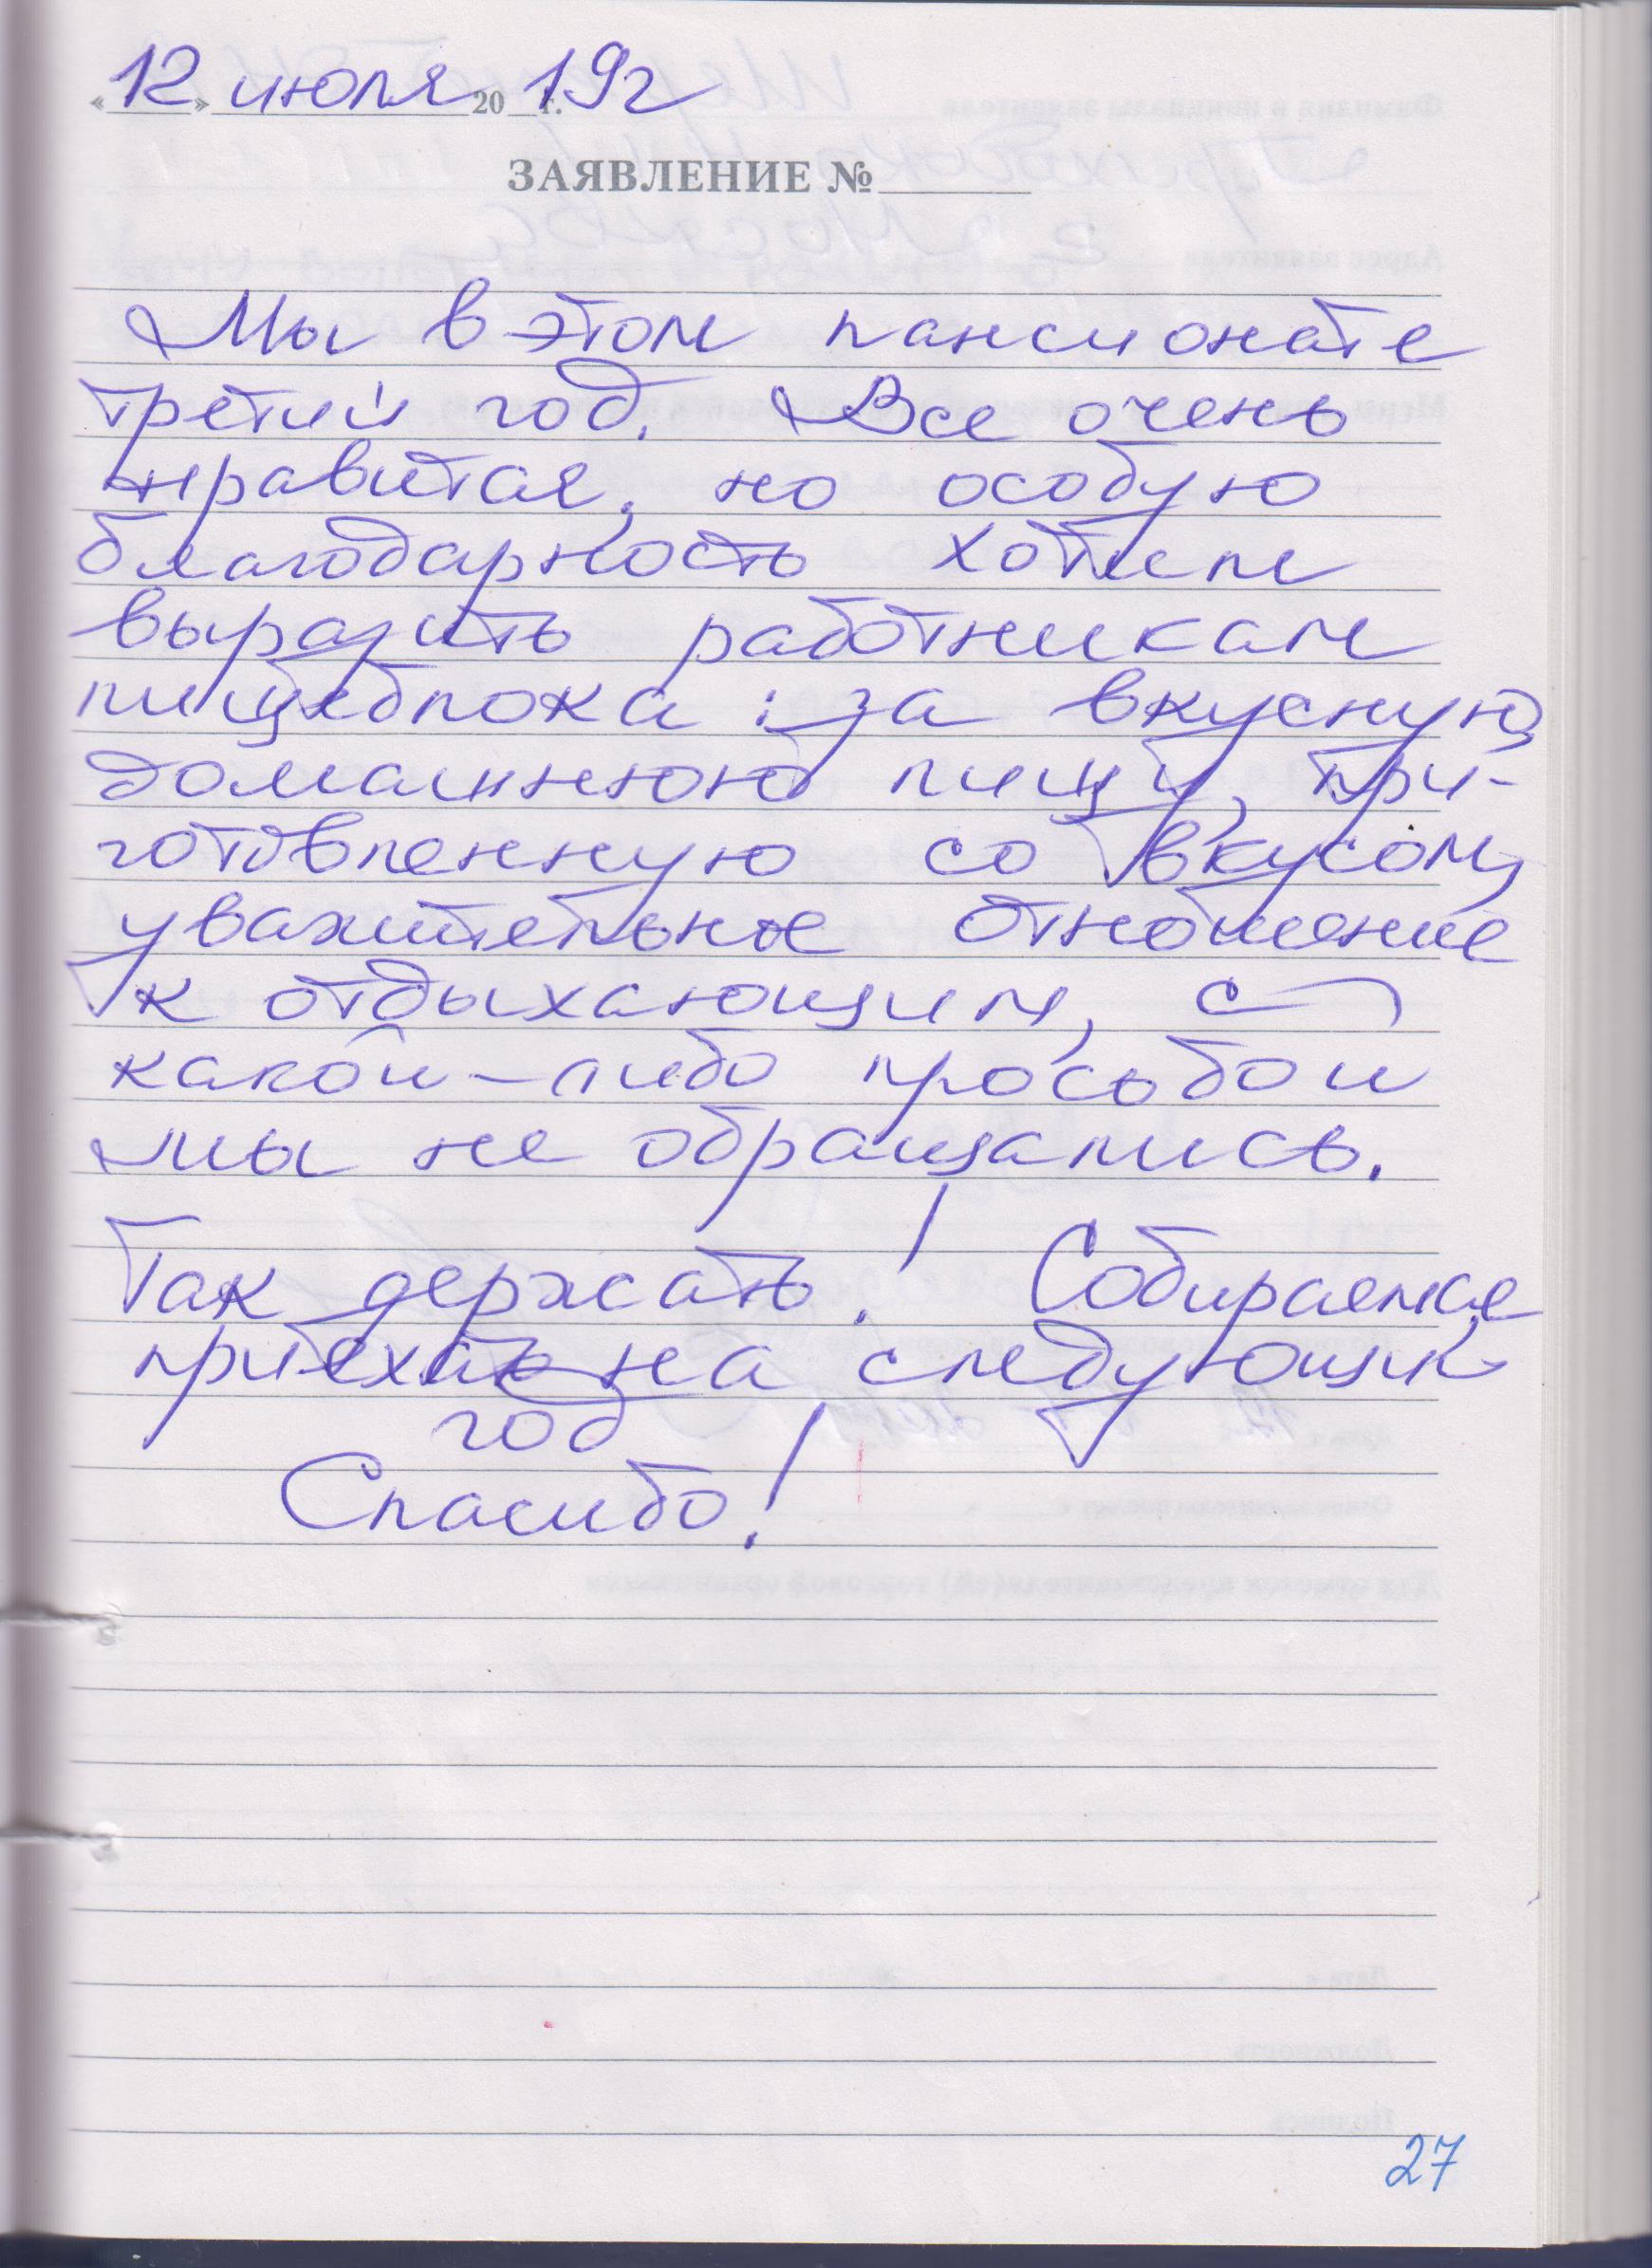 «12» июля 20__г. 19г
ЗАЯВЛЕНИЕ №
Мы в этом пансионате
третий год. Все очень
нравится, но особую
благодарность хотели
выразить работникам
пищеблока: за вкусную,
домашнюю пищу, при-
готовленную со вкусом,
уважительное отношение
к отдыхающим, с
какой-либо просьбой
мы не обращались.
Так держать! Собираемся
приехать на следующий
год
Спасибо!
27